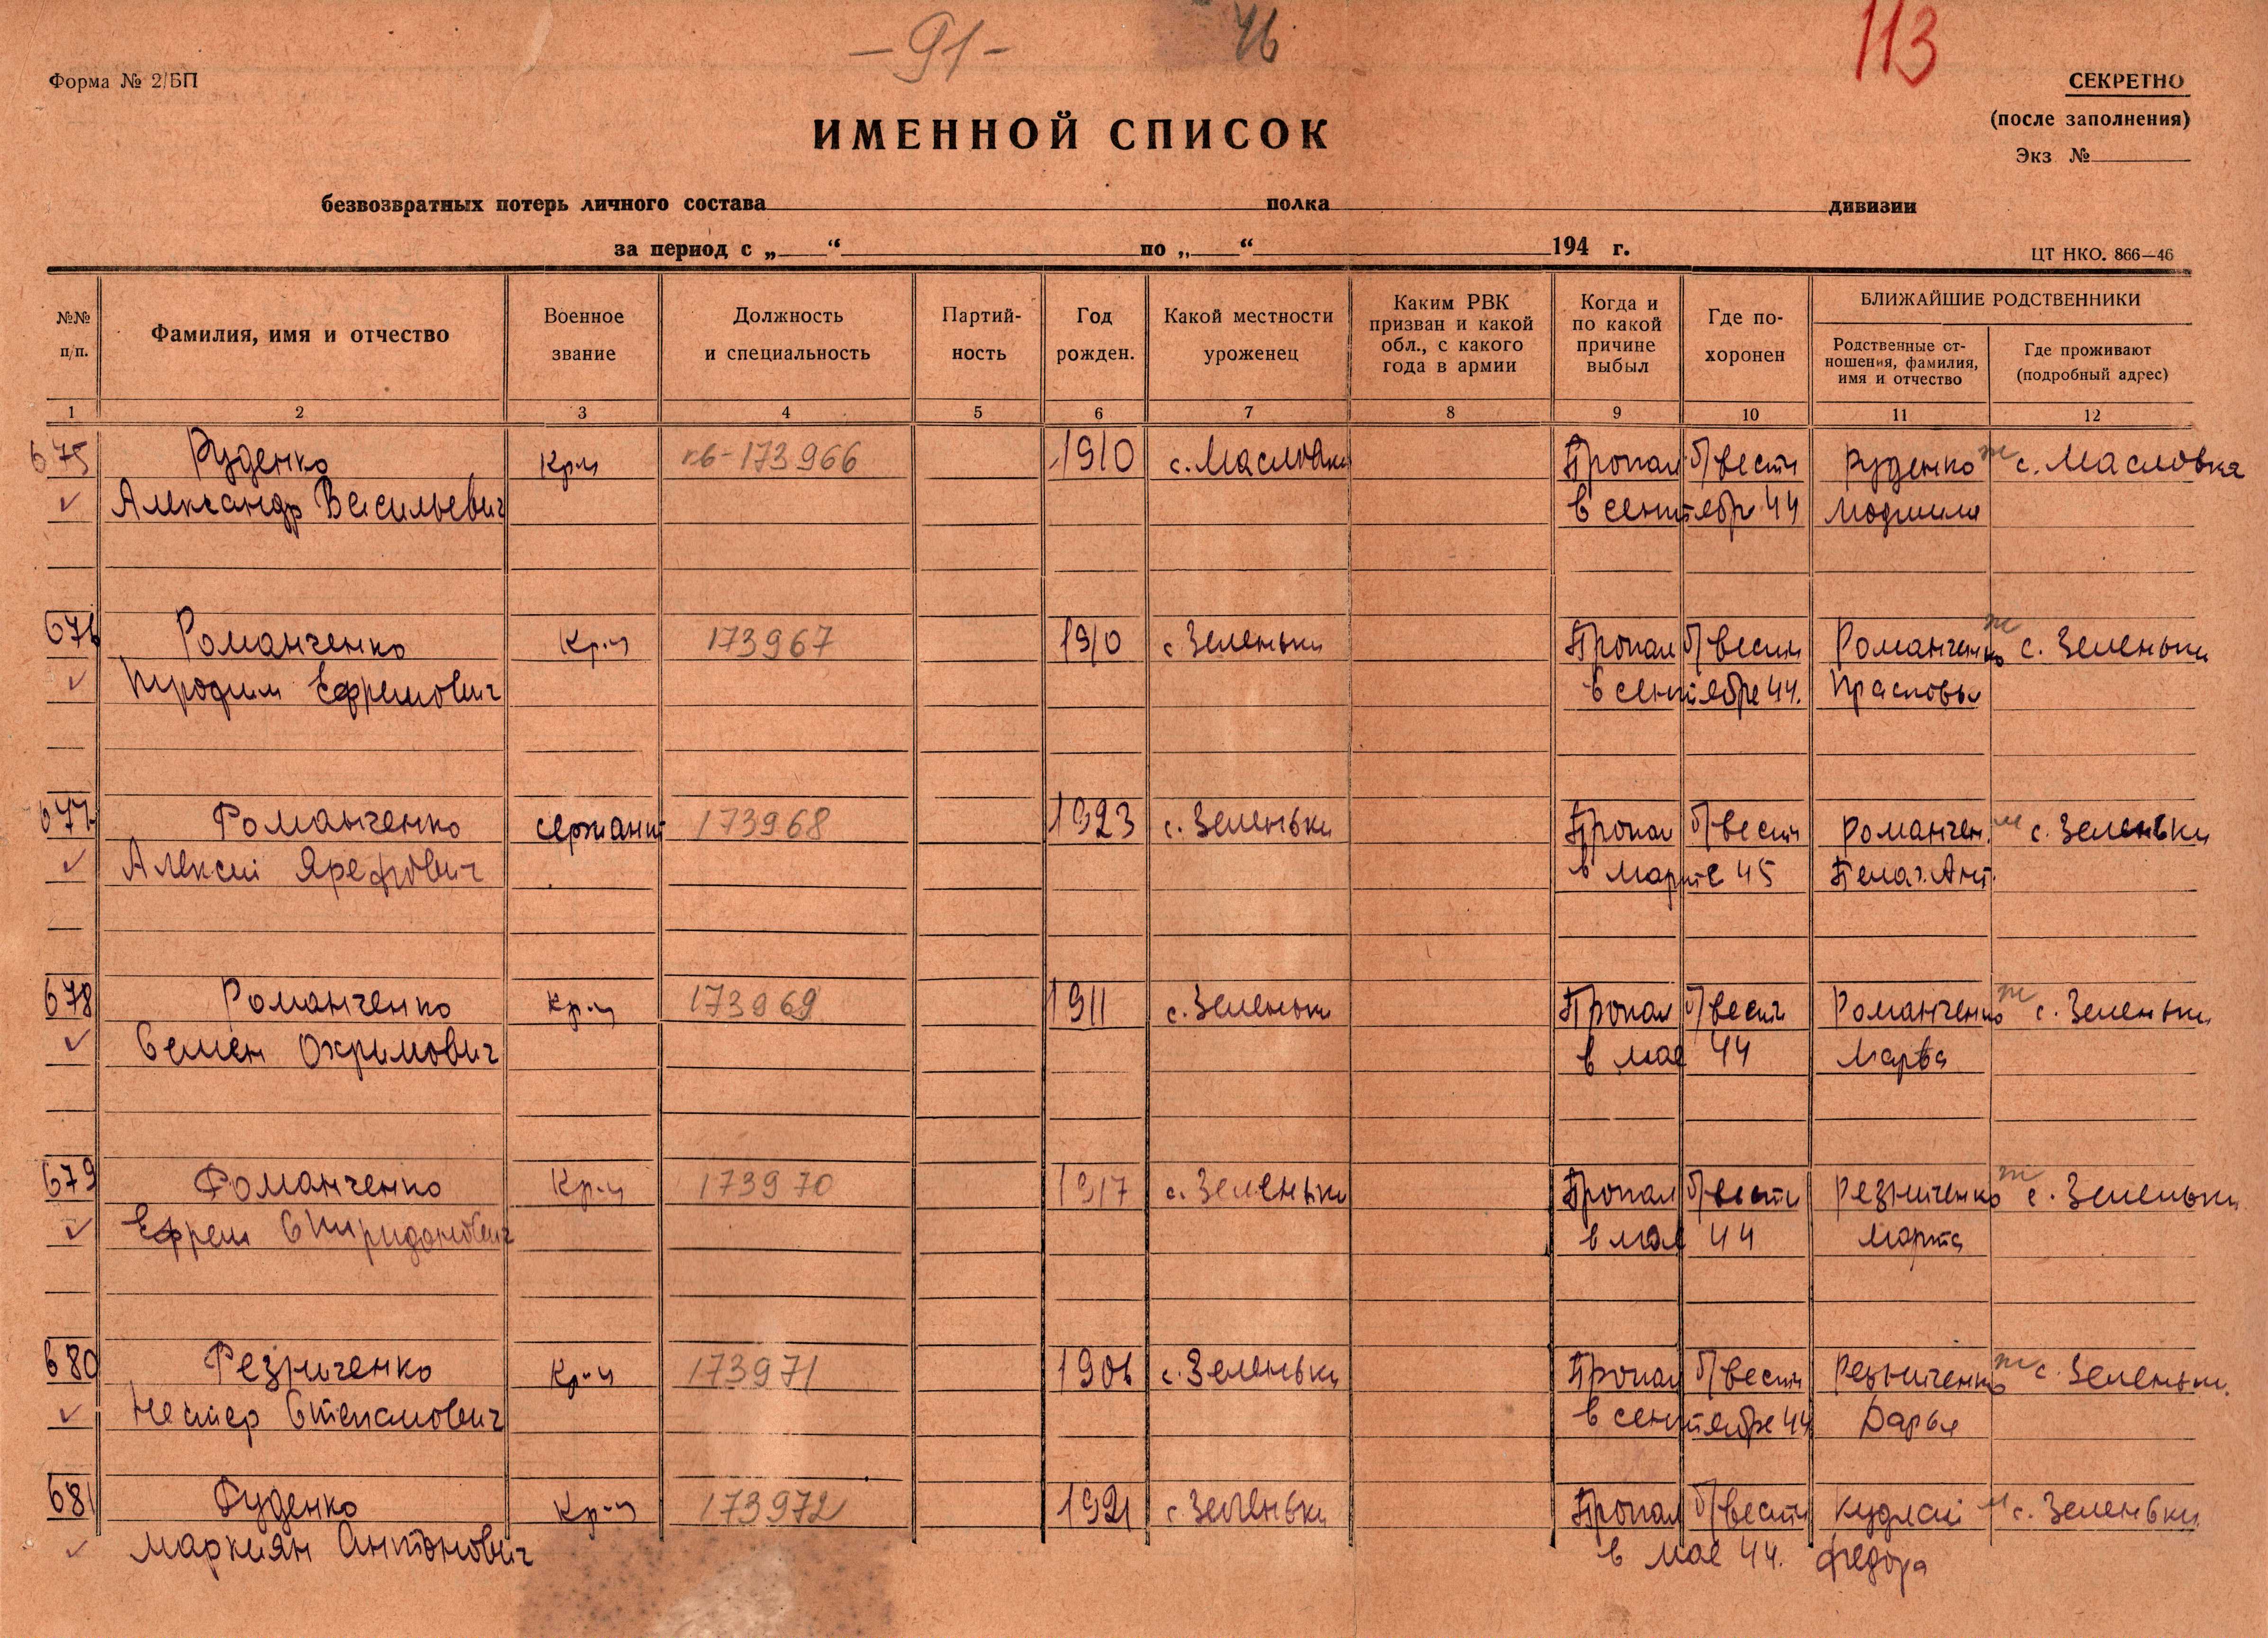 -91-
46
113
Форма № 2/БП
СЕКРЕТНО
(после заполнения)
Экз №
ИМЕННОЙ СПИСОК
безвозвратных потерь личного состава полка дивизии
за период с „ “ по „ “ 194 г.
ЦТ НКО. 866—46
№№ п/п.
Фамилия, имя и отчество
Военное звание
Должность и специальность
Партий-
ность
Год рожден.
Какой местности уроженец
Каким РВК
призван и какой
обл., с какого
года в армии
Когда и
по какой
причине
выбыл
Где по-
хоронен
БЛИЖАЙШИЕ РОДСТВЕННИКИ
Родственные от-
ношения, фамилия,
имя и отчество
Где проживают
(подробный адрес)
1 2 3 4 5 6 7 8 9 10 11 12
675 Руденко Кр-ц 173966 1910 с. Масловка Пропал б/вести Руденко ж с. Масловка
Александр Васильевич в сентябр 44
676 Романченко Кр-ц 173967 1910 с Зеленьки Пропал б/вести Романченко ж с. Зеленьки
Ефремович в сентябре 44.
677 Романченко сержант 173968 1923 с. Зеленьки Пропал б/вести Романчен. м с. Зеленьки
Алексей в марте 45 Пелаг. Ант.
678 Романченко Кр-ц 173969 1911 с. Зеленьки Пропал б/вести Романченко ж с. Зеленьки
Семен Охримович в мае 44 Марва
679 Романченко Кр-ц 173970 1917 с. Зеленьки Пропал б/вести Резниченко ж с. Зеленьки
Ефрем Спиридонович в мае 44 Марта
680 Резниченко Кр-ц 173971 1906 с. Зеленьки Пропал б/вести Резниченко ж с. Зеленьки.
Нестер Степанович в сентябре 44 Дарья
681 Руденко Кр-ц 173972 1921 с. Зеленьки Пропал б/вести м с. Зеленьки.
Маркиян Антонович в мае 44. Федора